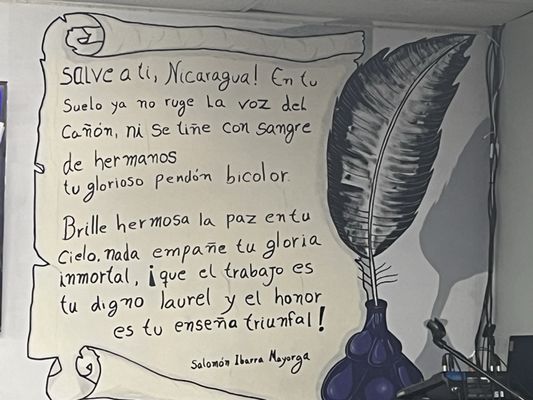 Salve a ti, Nicaragua! En tu
Suelo ya no ruge la voz del
Cañón, ni se tiñe con sangre
de hermanos
tu glorioso pendón bicolor.
Brille hermosa la paz en tu
Cielo, nada empañe tu gloria
inmortal, ¡que el trabajo es
tu digno laurel y el honor
es tu enseña triunfal!
Salomón Ibarra Mayorga